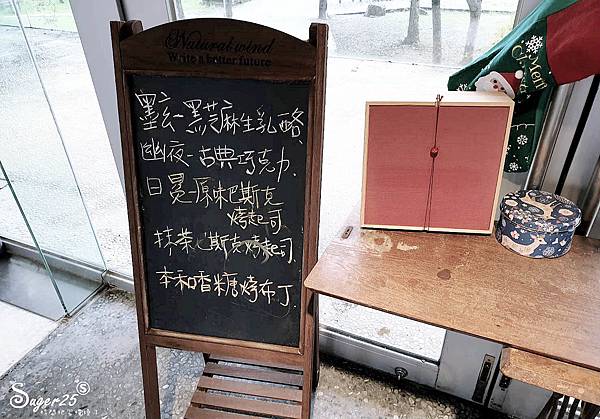 Natural wind
Write a better future
墨玄-黑芝麻生乳酪
幽夜-古典巧克力
日晃-原味巴斯克
烤起司
抹茶巴斯克烤起司
本和香糖烤布丁
Merry
Suger25